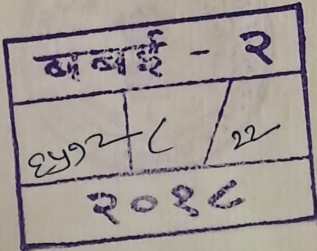 बबई - २
६५१२ ८ / २२
२०१८